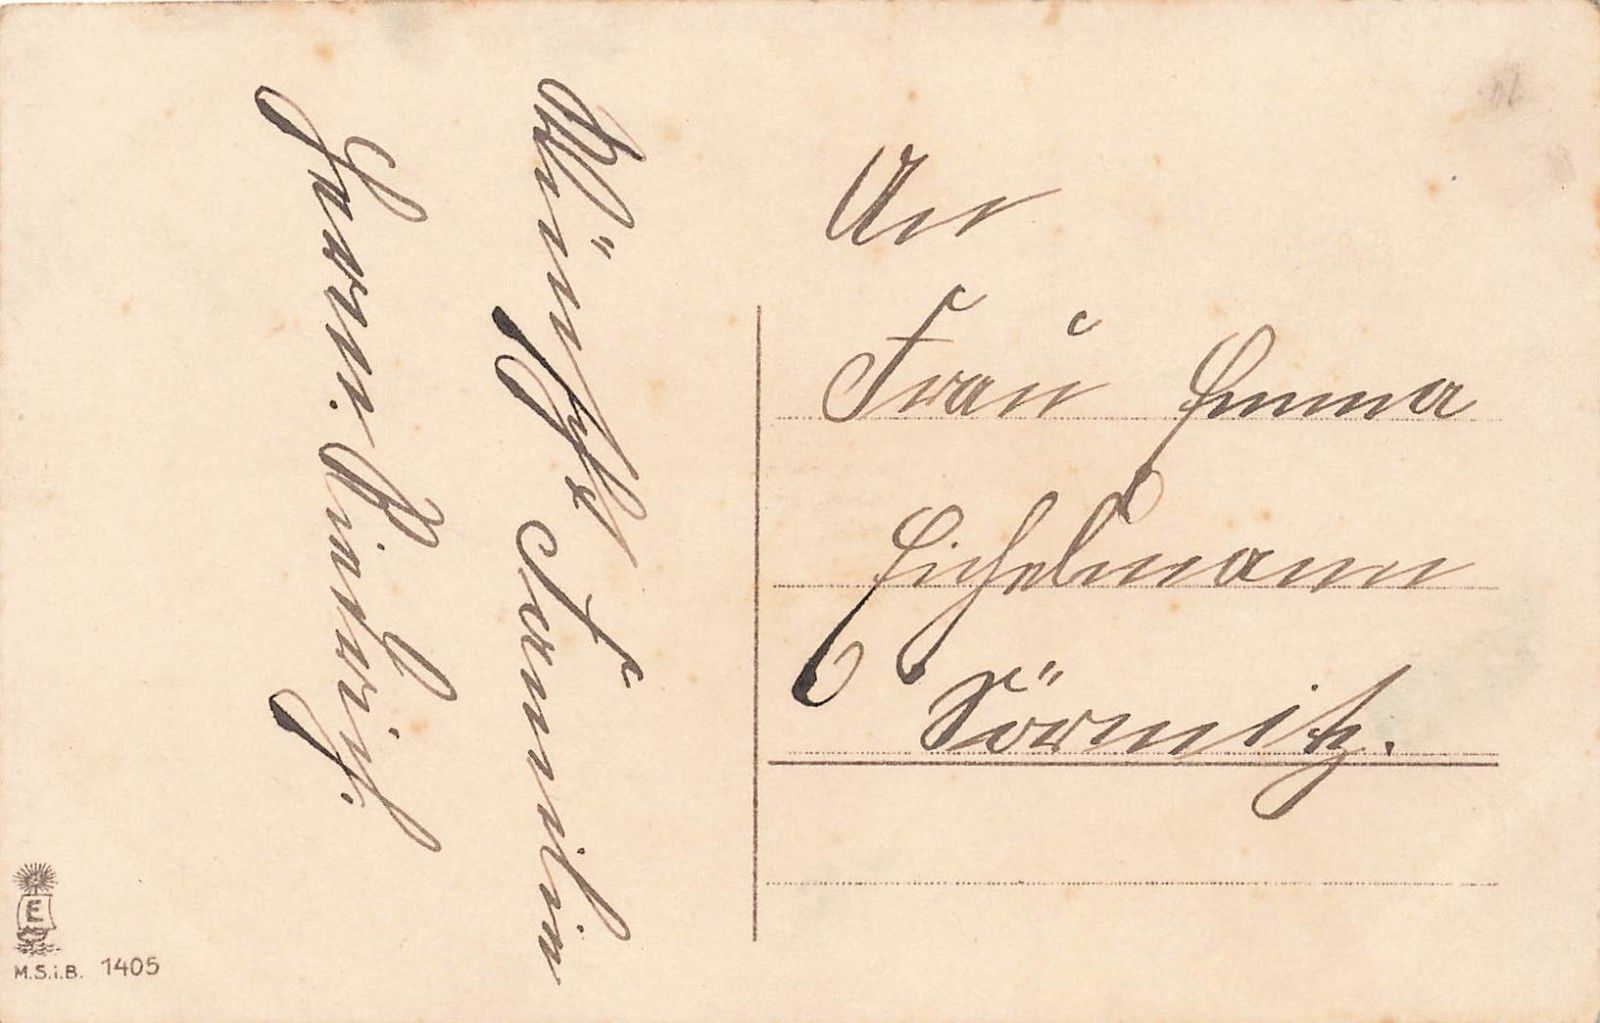 Wünscht Familie
Herm. Dietrich.
An
Frau Emma
Eichelmann
Sörmitz.
E
M.S.i.B. 1405